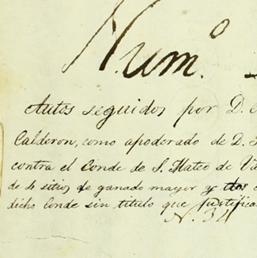 Num.º
Autos seguidos por D.
Calderon, como apoderado de D.
contra el Conde de S. Mateo de Va
de 4 sitios de ganado mayor y dos
dicho Conde sin titulo que justifica
N. 34